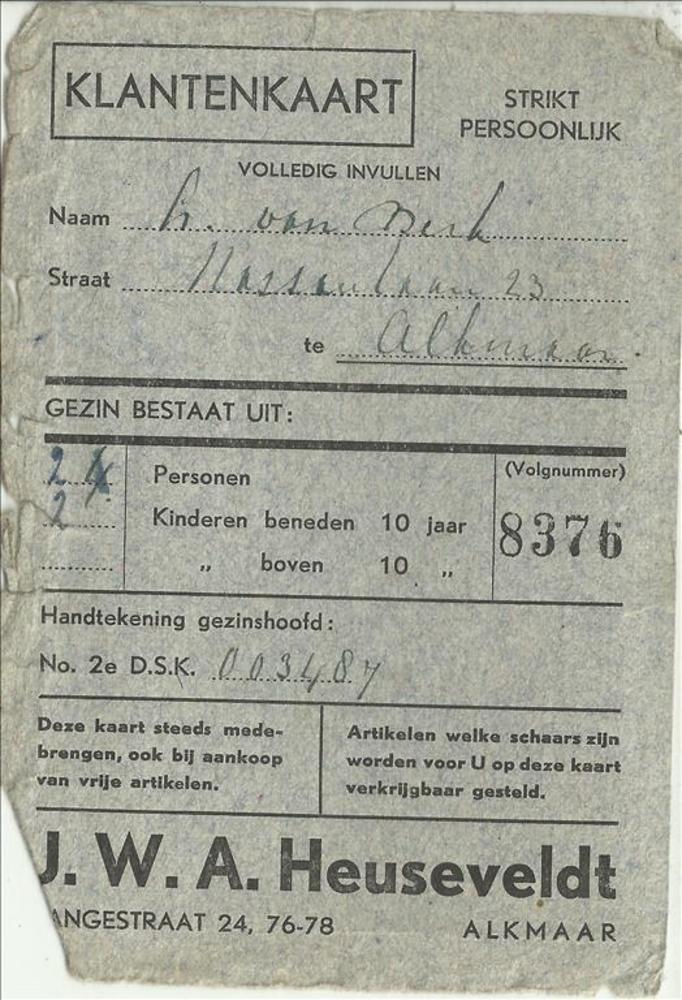 KLANTENKAART
STRIKT
PERSOONLIJK
VOLLEDIG INVULLEN
Naam van
Straat Nassaulaan 23
te Alkmaar.
GEZIN BESTAAT UIT:
2 Personen
(Volgnummer)
2 Kinderen beneden 10 jaar
8376
„ boven 10 „
Handtekening gezinshoofd:
No. 2e D.S.K. 003487
Deze kaart steeds mede-
brengen, ook bij aankoop
van vrije artikelen.
Artikelen welke schaars zijn
worden voor U op deze kaart
verkrijgbaar gesteld.
J. W. A. Heuseveldt
ANGESTRAAT 24, 76-78 ALKMAAR